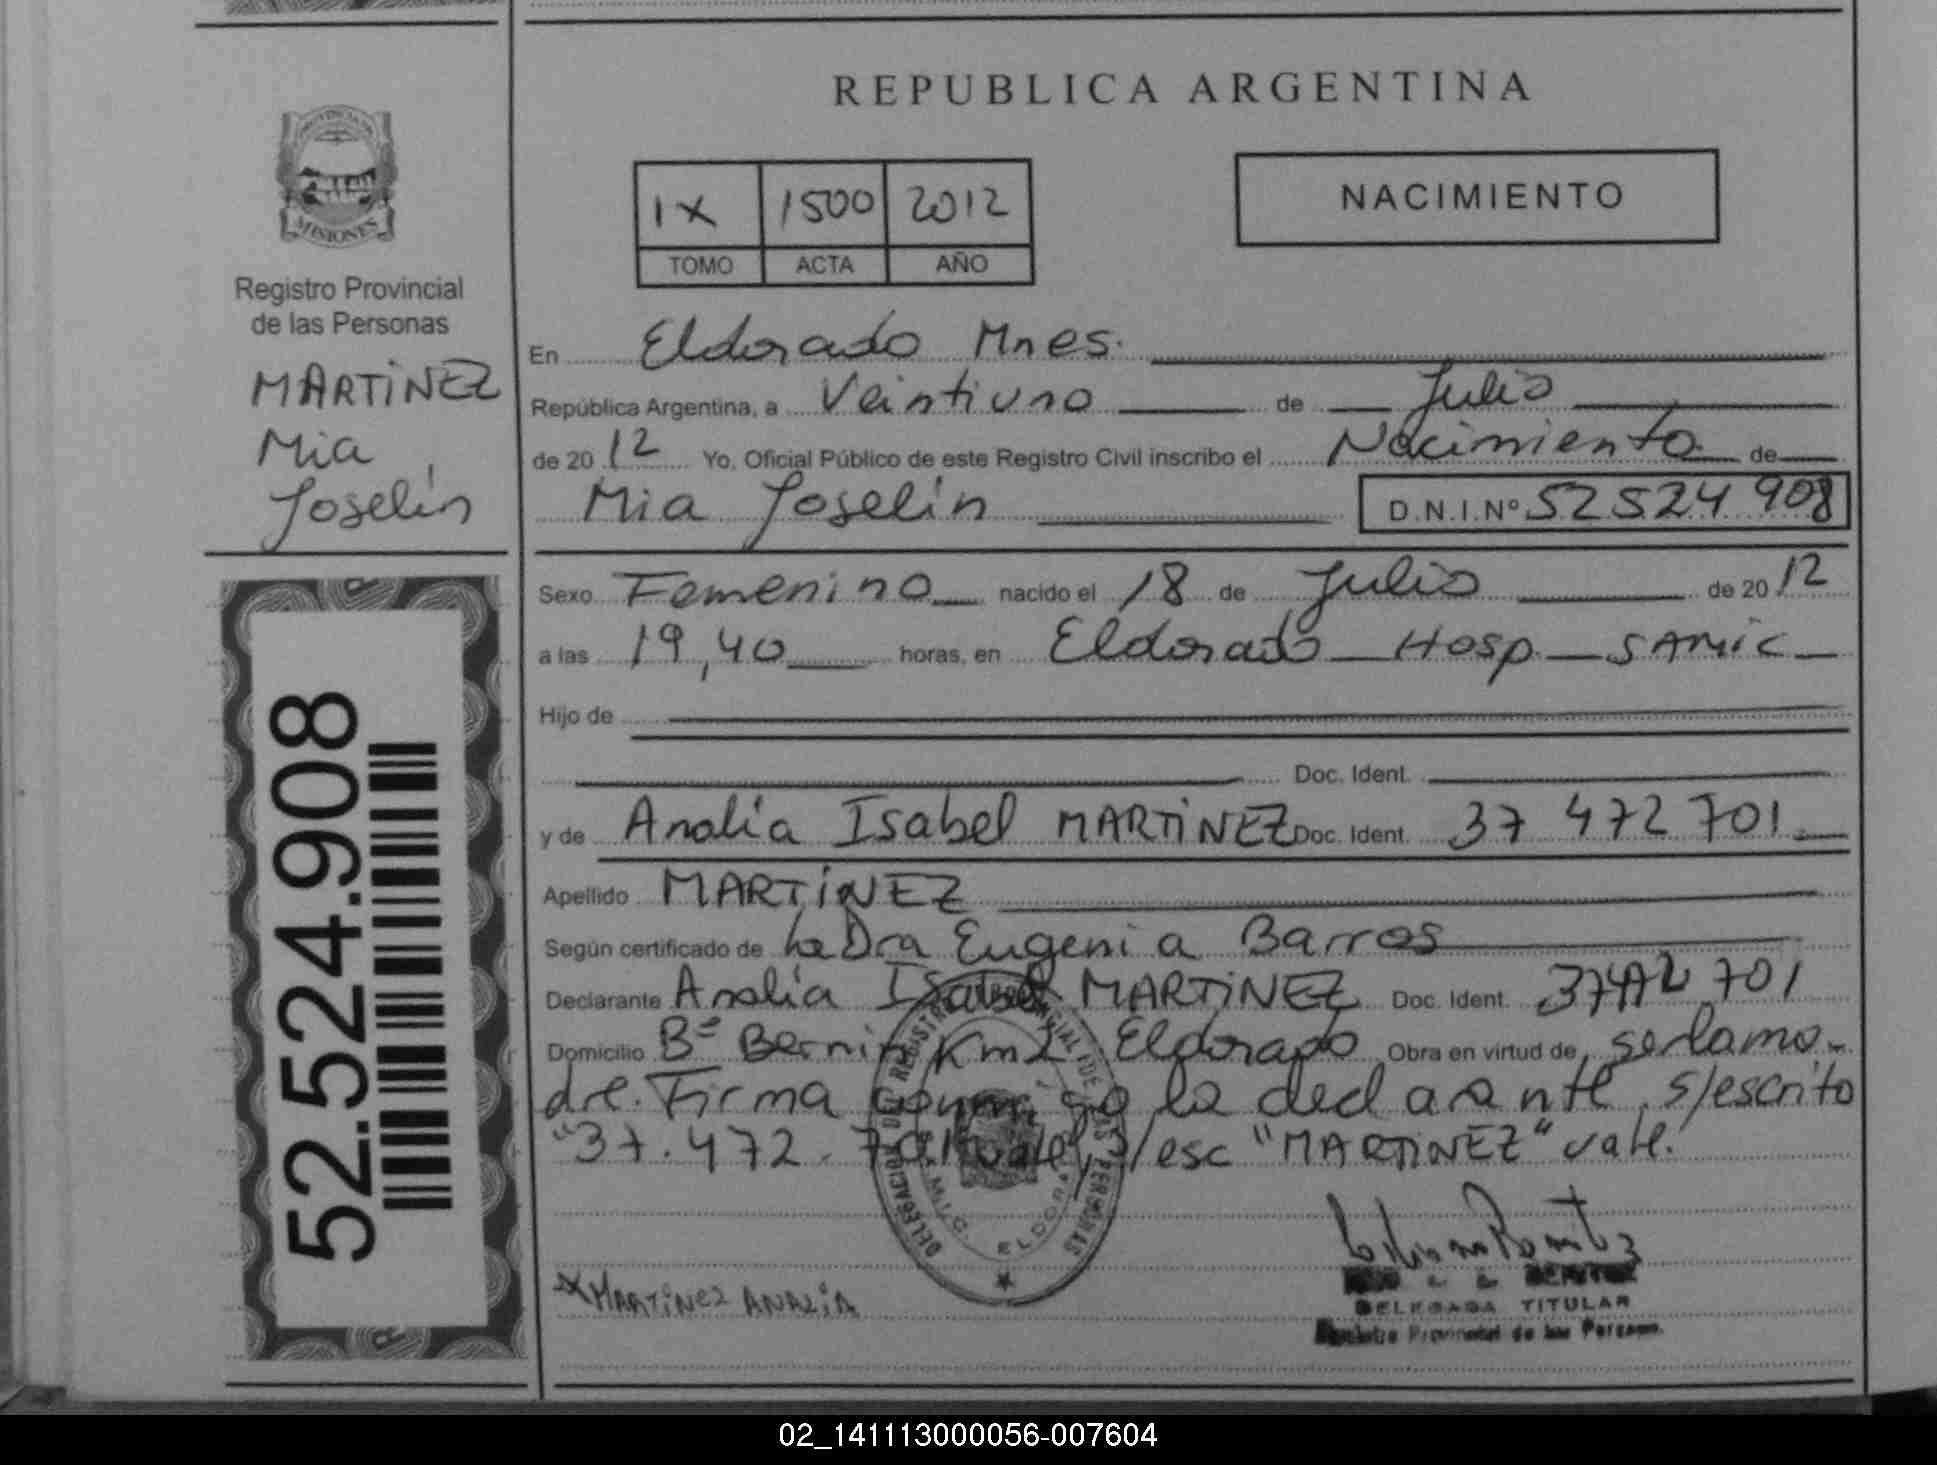 REPUBLICA ARGENTINA
PROVINCIA DE
MISIONES
Registro Provincial
de las Personas
MARTINEZ
Mia
Joselín
52.524.908
IX 1500 2012
TOMO ACTA AÑO
NACIMIENTO
En Eldorado Mnes.
República Argentina, a Veintiuno de Julio
de 20 12 Yo, Oficial Público de este Registro Civil inscribo el Nacimiento de
Mia Joselín D.N.I.Nº 52 524 908
Sexo Femenino nacido el 18 de Julio de 20 12
a las 19,40 horas, en Eldorado Hosp SAMIC
Hijo de
Doc. Ident.
y de Analía Isabel MARTINEZ Doc. Ident. 37 472 701
Apellido MARTINEZ
Según certificado de La Dra Eugenia Barros
Declarante Analía Isabel MARTINEZ Doc. Ident. 37472 701
Domicilio Bº Bernin Km2 Eldorado Obra en virtud de ser la ma-
dre. Firma conmigo la declarante, s/escrito
"37.472.701" vale, s/esc "MARTINEZ" vale.
DELEGACION DEL REGISTRO PROVINCIAL DE LAS PERSONAS
ELDORADO
MARTINEZ ANALIA
BENITEZ
DELEGADA TITULAR
Registro Provincial de las Personas
02_141113000056-007604